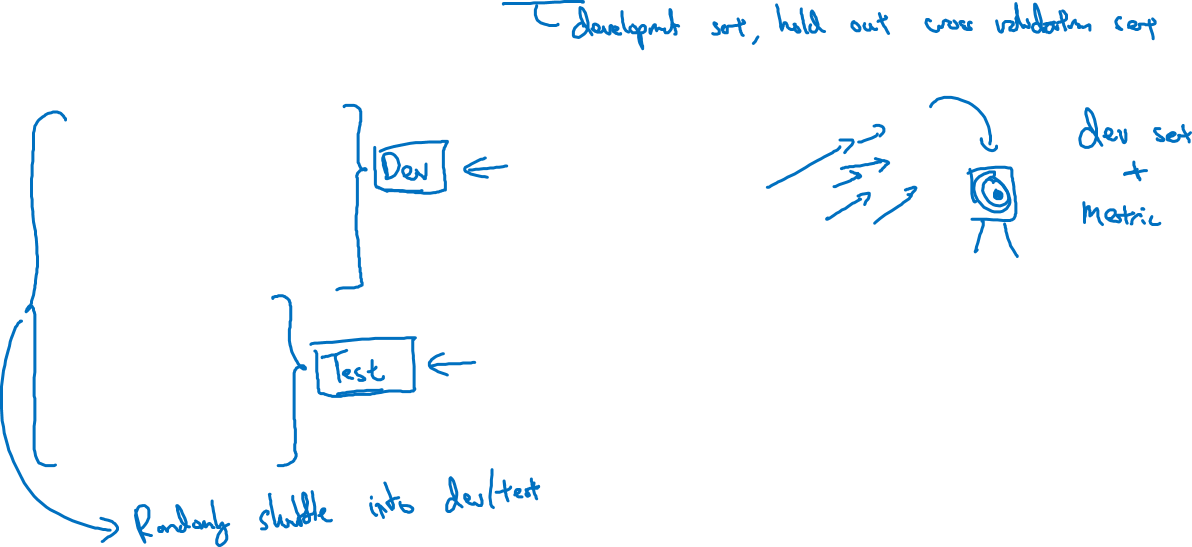 development set, hold out cross validation set
Dev
dev set
+
Metric
Test
Randomly shuffle into dev/test